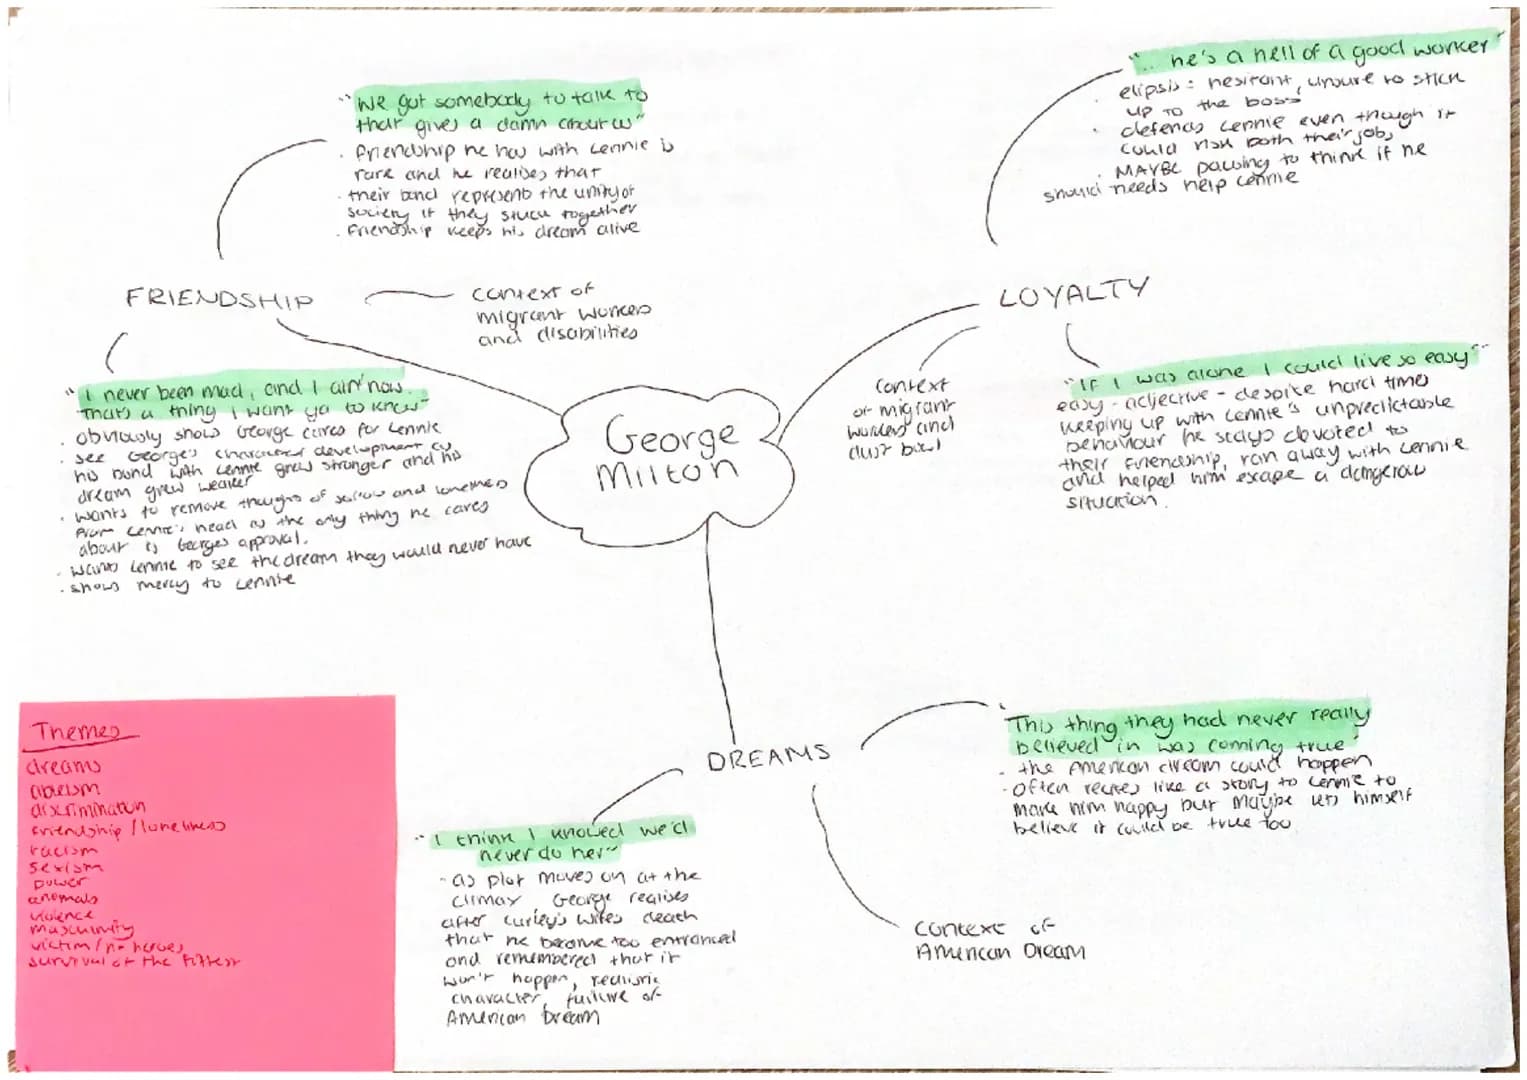 "We got somebody to talk to
that gives a damn about us"
. friendship he has with Lennie is
rare and he realises that
· their bond represents the unity of
society if they stuck together
· Friendship keeps his dream alive
FRIENDSHIP
context of
migrant workers
and disabilities
"I never been mad, and I ain't now.
That's a thing I want ya to know"
. obviously shows George cares for Lennie
. see George's character development as
his bond with Lennie grew stronger and his
dream grew weaker
. wants to remove thoughts of sorrow and loneliness
from Lennie's head as the only thing he cares
about is Georges approval.
. wants Lennie to see the dream they would never have
. shows mercy to Lennie
George
Milton
"... he's a hell of a good worker"
· elipsis = hesitant, unsure to stick
up to the boss
· defends Lennie even though it
could risk both their jobs
. MAYBE pausing to think if he
should needs help Lennie
LOYALTY
context
of migrant
workers and
dust bowl
"If I was alone I could live so easy"
easy - adjective - despite hard times
keeping up with Lennie's unpredictable
behaviour he stays devoted to
their friendship, ran away with Lennie
and helped him escape a dangerous
situation.
DREAMS
"This thing they had never really
believed in was coming true"
· the American dream could happen
· Often recites like a story to Lennie to
make him happy but Maybe lets himself
believe it could be true too
"I think I knowed we'd
never do her"
- as plot moves on at the
climax, George realises
after Curley's wifes death
that he became too entranced
and remembered that it
won't happen, realistic
character, failure of
American Dream
context of
American Dream
Themes
dreams
ableism
discrimination
friendship / loneliness
racism
sexism
power
animals
violence
masculinity
victim / no heroes
survival of the fittest